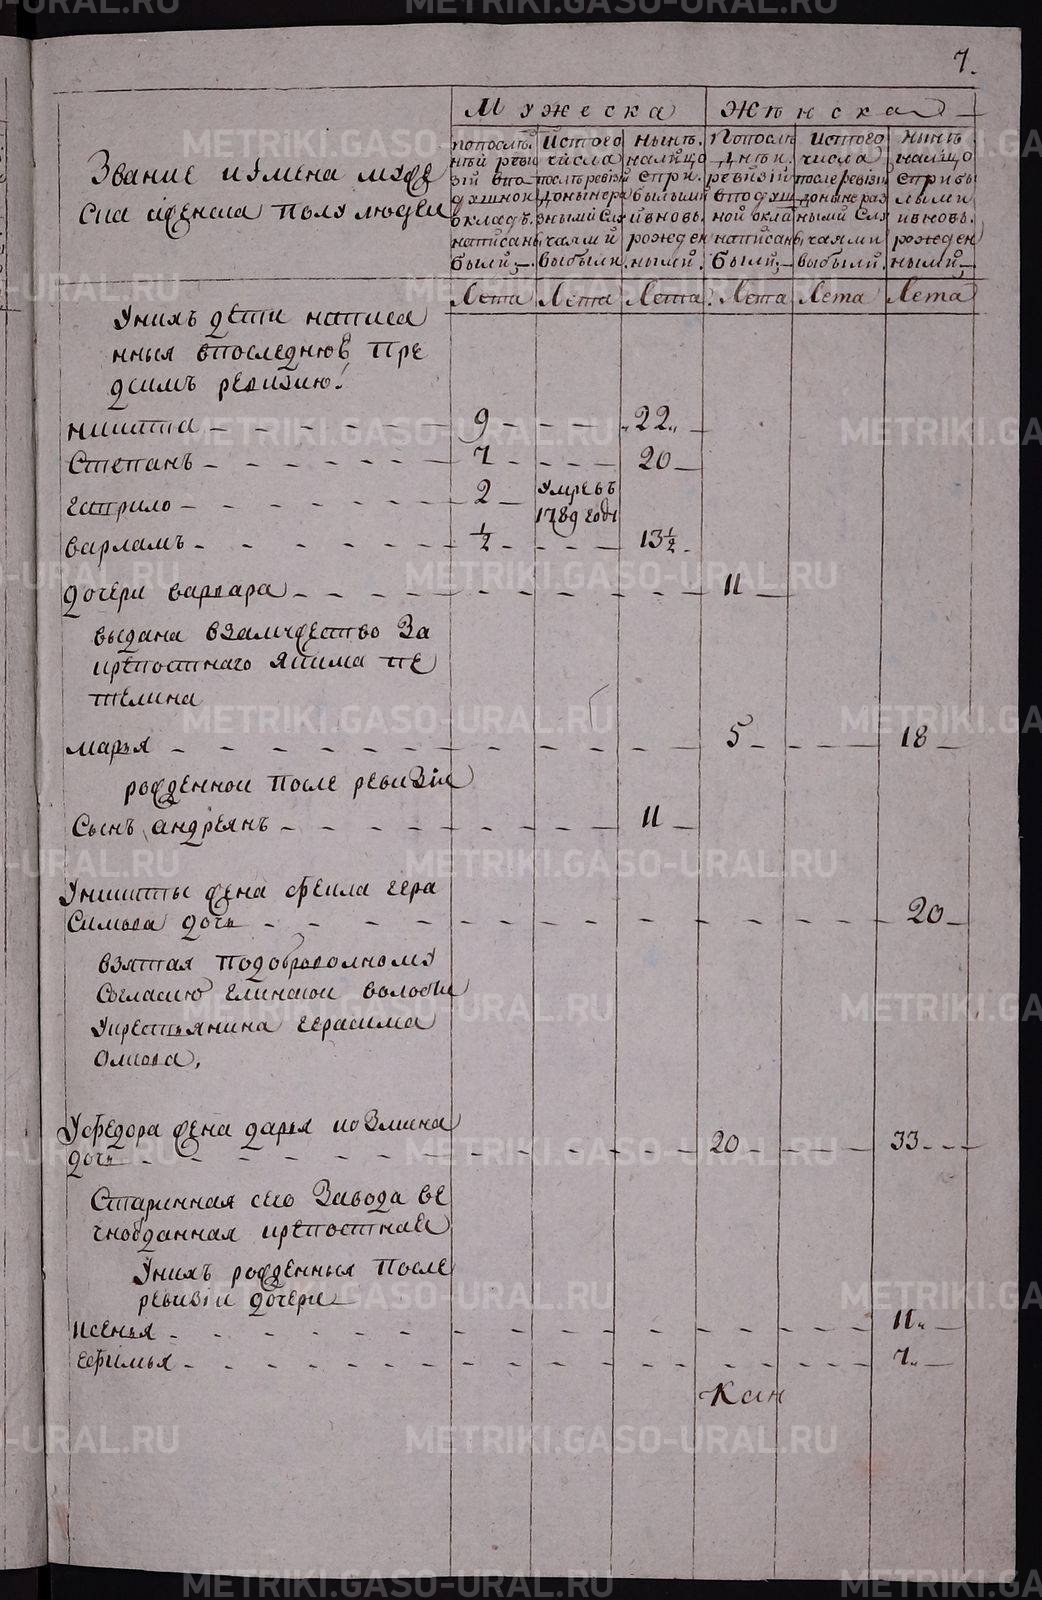 7.
Мужеска Женска
Звание и имена муже
ска и женска полу людей
по посл<ѣ>д
ней реви
зии в по
душной
окладъ
написаны
были;
Ис того
числа
после ревизии
до ныне ра
зными слу
чаями
выбыли
Нынѣ
на лицо
с при
былыми
и вновь
рожден
ными.
По послѣ
дней
ревизии
в подуш
ной окла
написаны
были;
Ис того
числа
после ревизии
до ныне раз
ными слу
чаями
выбыли.
Нынѣ
на лицо
с прибы
лыми
и вновь
рожден
ными,
Лета Лета Лета. Лета Лета Лета
У нихъ дети написа
нныя в последнюю пре
д симъ ревизию.
никита 9 22
Степанъ 7 20
гаврило 2 Умре въ
1789 годе
варламъ ½ 13½
дочери варвара 11
выдана в замужество за
крепостнаго якима пе
телина
марья 5 18
рожденной после ревизии
Сынъ андреянъ 11
У никиты жена фекла гера
симова дочь 20
взятая по доброволному
согласию глинской волости
у крестьянина герасима
У федора жена дарья козмина
дочь 20 33
Старинная сего завода ве
чноотданная крепостная
У нихъ рожденныя после
ревизии дочери
ксенья 11
ефимья 7
METRIKI.GASO-URAL.RU